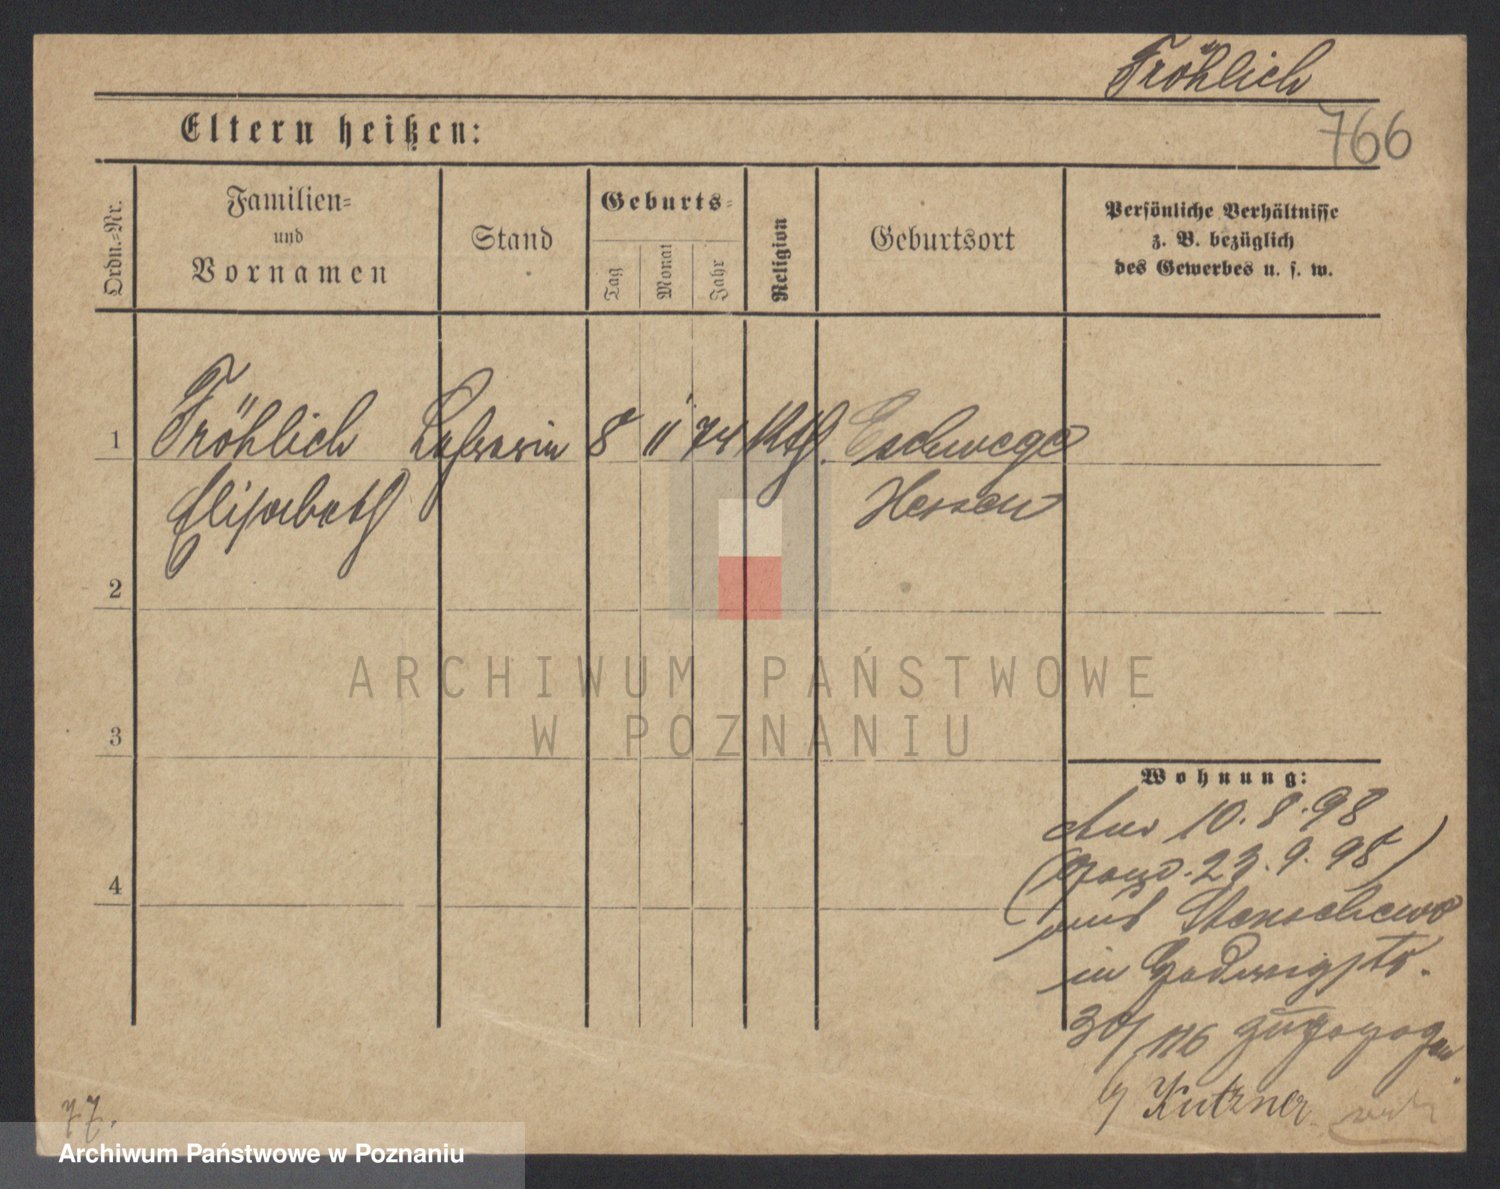 Fröhlich
766
Eltern heißen:
Ordn.=Nr.
Familien=
und
Vornamen
Stand
Geburts=
Tag
Monat
Jahr
Religion
Geburtsort
Persönliche Verhältnisse
z. B. bezüglich
des Gewerbes u. s. w.
1
Fröhlich Lehrerin 8 11 74 Kth. Eschwege
Elisabeth Hessen
2
3
4
ARCHIWUM PAŃSTWOWE
W POZNANIU
Wohnung:
Am 10.8.98
23.9.98)
aus Stenschewo
in Hedwigstr.
30/ zugezogen
b/ Kutzner
Archiwum Państwowe w Poznaniu